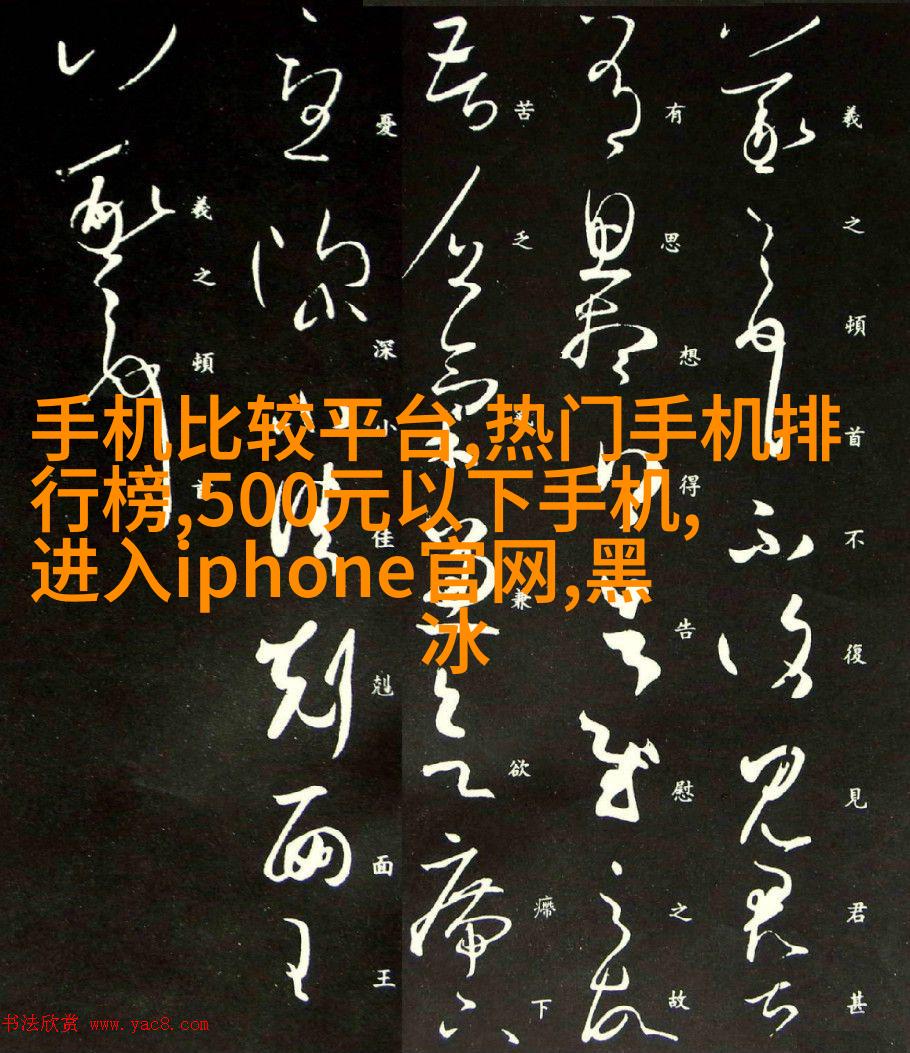 羲之頓首不復見君甚
有思想得告慰之故
苦乏兼欲㿃下
憂深小佳剋面王
羲之頓首
手机比较平台,热门手机排
行榜,500元以下手机,
进入iphone官网,黑
冰
书法欣赏 www.yac8.com